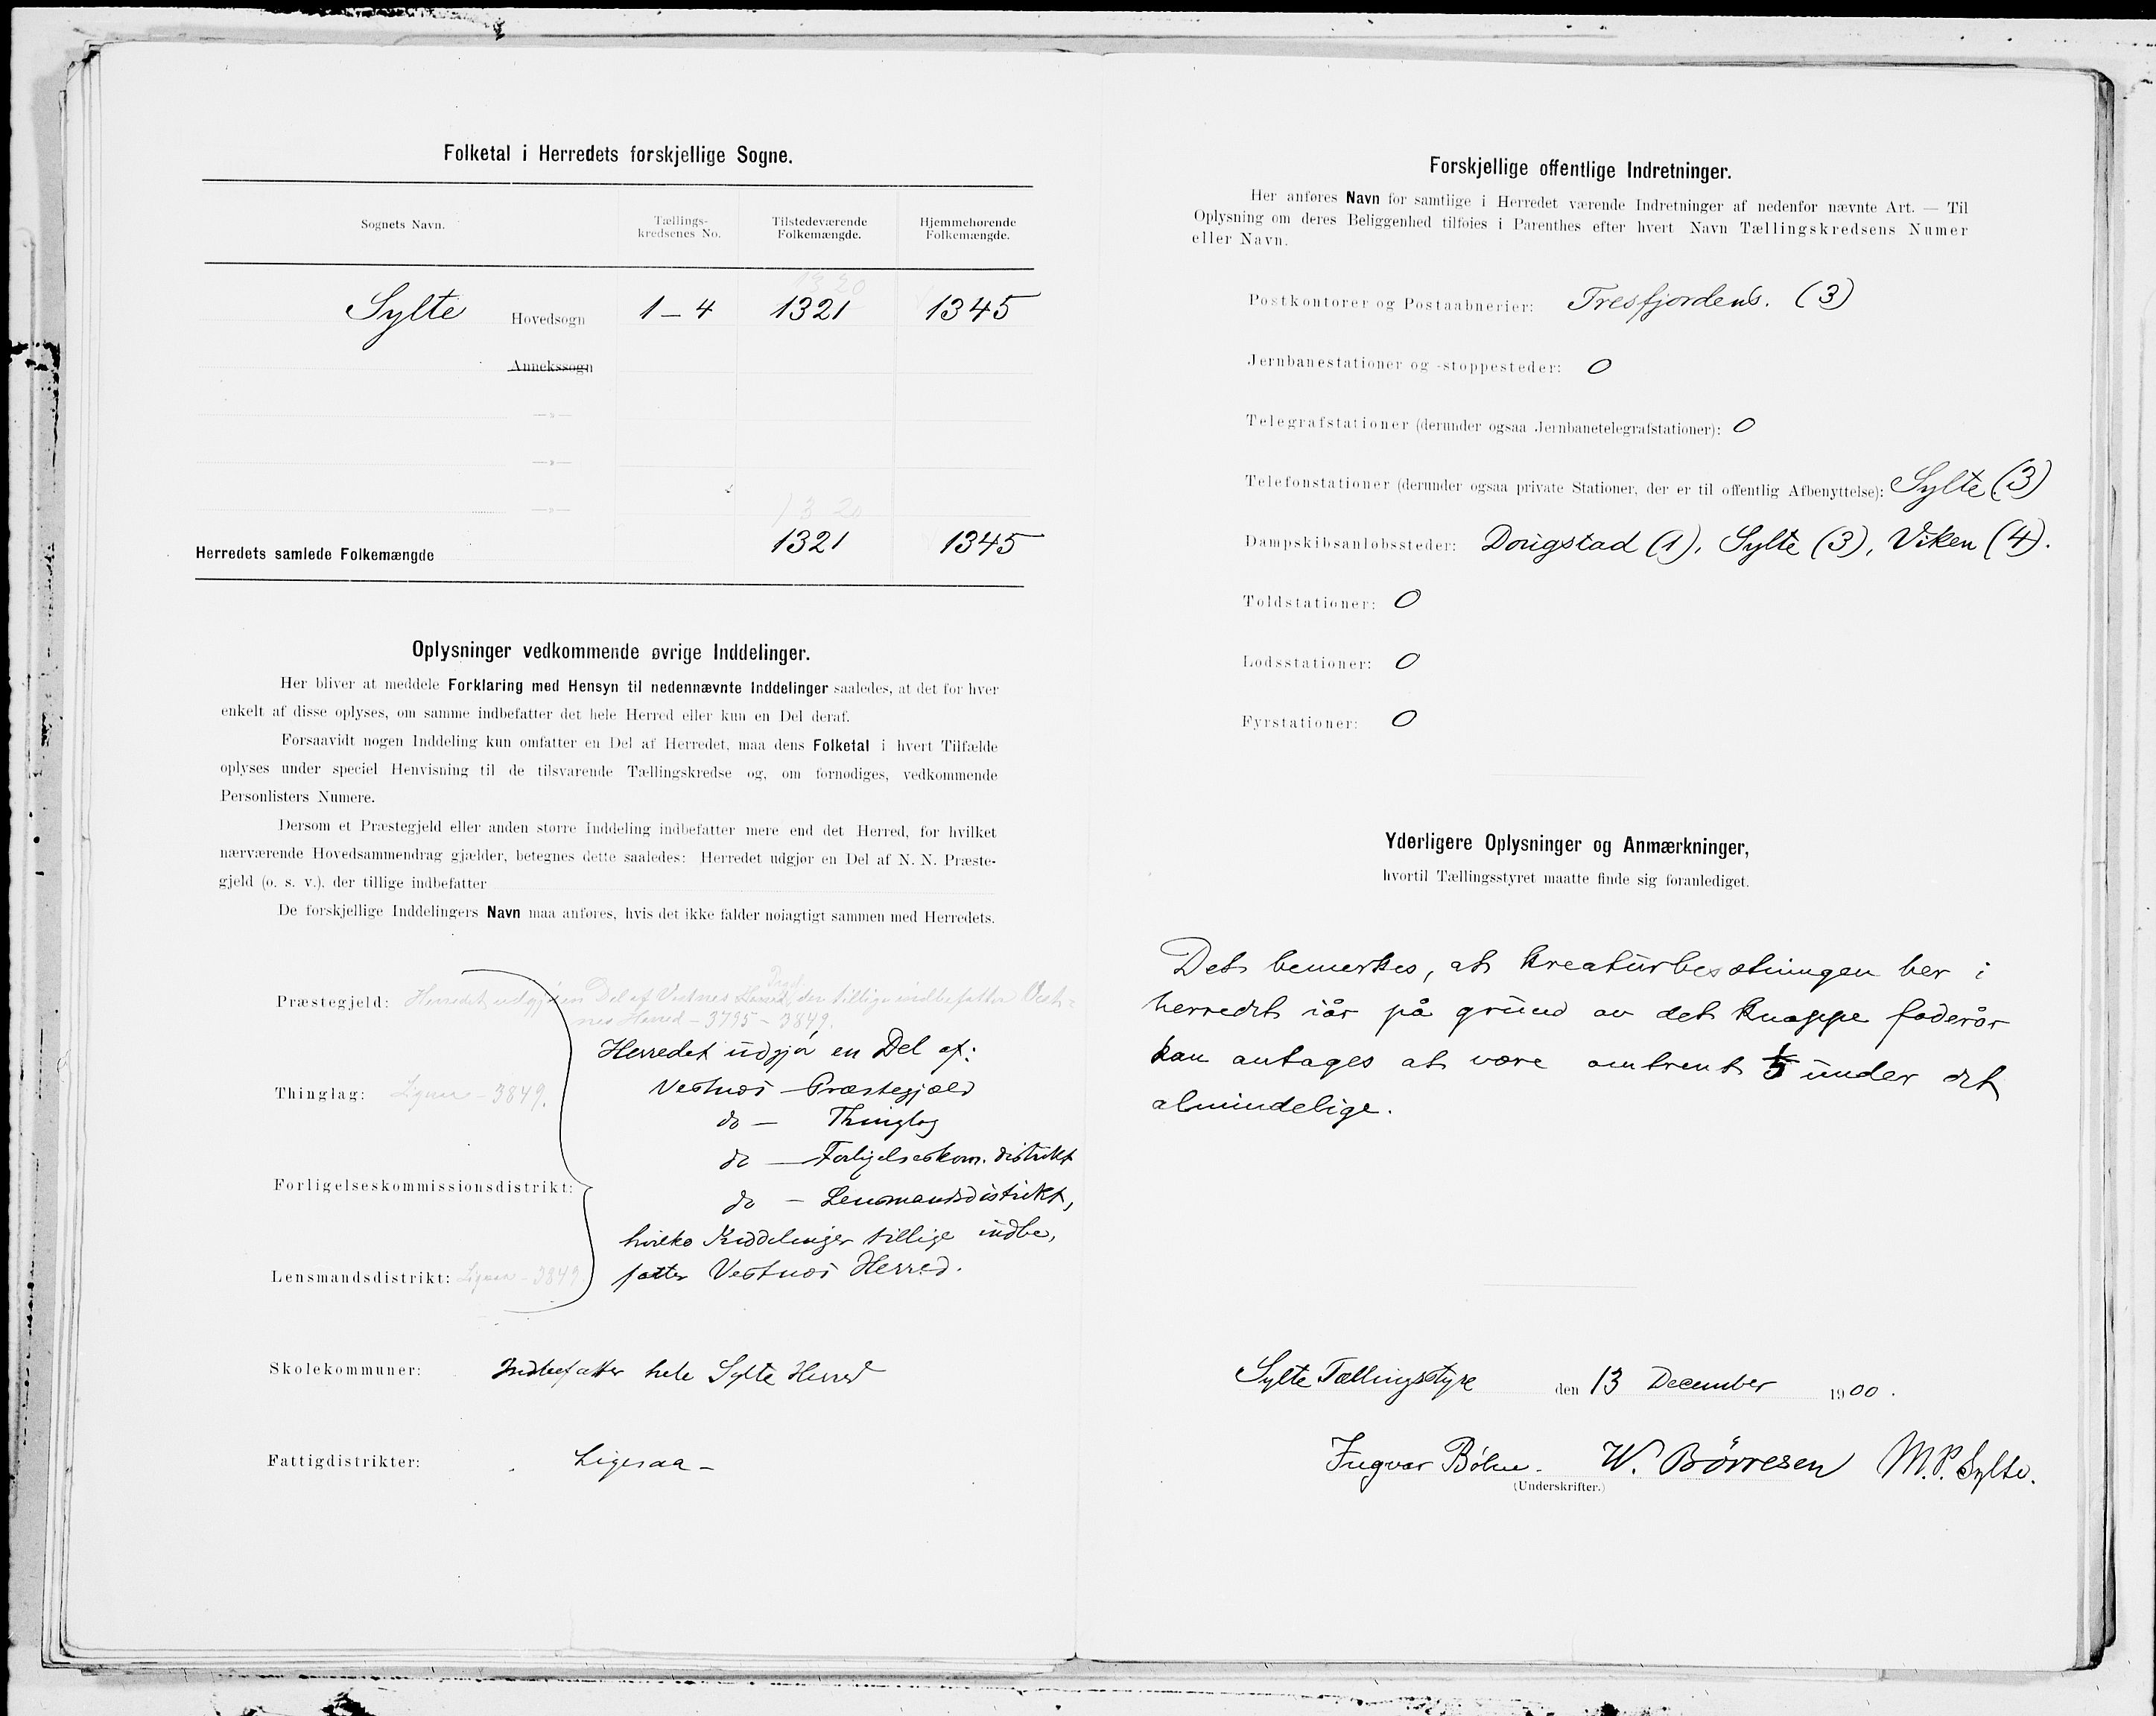 Folketal i Herredets forskjellige Sogne.
Sognets Navn.
Tællings-
kredsenes No.
Tilstedeværende
Folkemængde.
Hjemmehørende
Folkemængde.
1320
Sylte Hovedsogn 1-4 1321 1345
Annekssogn
—»—
—»—
—»—
1320
Herredets samlede Folkemængde 1321 1345
Oplysninger vedkommende øvrige Inddelinger.
Her bliver at meddele Forklaring med Hensyn til nedennævnte Inddelinger saaledes, at det for hver
enkelt af disse oplyses, om samme indbefatter det hele Herred eller kun en Del deraf.
Forsaavidt nogen Inddeling kun omfatter en Del af Herredet, maa dens Folketal i hvert Tilfælde
oplyses under speciel Henvisning til de tilsvarende Tællingskredse og, om fornødiges, vedkommende
Personlisters Numere.
Dersom et Præstegjeld eller anden større Inddeling indbefatter mere end det Herred, for hvilket
nærværende Hovedsammendrag gjælder, betegnes dette saaledes: Herredet udgjør en Del af N. N. Præste-
gjeld (o. s. v.), der tillige indbefatter
De forskjellige Inddelingers Navn maa anføres, hvis det ikke falder nøiagtigt sammen med Herredets.
Præstegjeld: Herredet udgjør en Del af Vestnes Herred, der tillige indbefatter Vest-
nes Herred - 3795 - 3849.
Herredet udgjør en Del af:
Vestnæs - Præstegjæld
Thinglag: 3849.
do - Thinglag
do - Forligelseskom. distrikt
Forligelseskommissionsdistrikt:
do - Lensmandsdistrikt,
hvilke Inddelinger tillige indbe,
Lensmandsdistrikt: 3849.
fatter Vestnæs Herred.
Skolekommuner: Indbefatter hele Sylte Herred
Fattigdistrikter: Ligesaa -
Forskjellige offentlige Indretninger.
Her anføres Navn for samtlige i Herredet værende Indretninger af nedenfor nævnte Art. — Til
Oplysning om deres Beliggenhed tilføies i Parenthes efter hvert Navn Tællingskredsens Numer
eller Navn.
Postkontorer og Postaabnerier: Tresfjordens. (3)
Jernbanestationer og -stoppesteder: 0
Telegrafstationer (derunder ogsaa Jernbanetelegrafstationer): 0
Telefonstationer (derunder ogsaa private Stationer, der er til offentlig Afbenyttelse): Sylte (3)
Dampskibsanløbssteder: Dougstad (1), Sylte (3), Viken (4).
Toldstationer: 0
Lodsstationer: 0
Fyrstationer: 0
Yderligere Oplysninger og Anmærkninger,
hvortil Tællingsstyret maatte finde sig foranlediget.
Det bemerkes, at kreaturbesætningen her i
herredet iår på grund av det knappe foderår
kan antages at være omtrent 1/5 under det
almindelige.
Sylte Tællingsstyre den 13 December 1900.
Ingvar Bølne. W. Børresen M.P. Sylte.
(Underskrifter.)